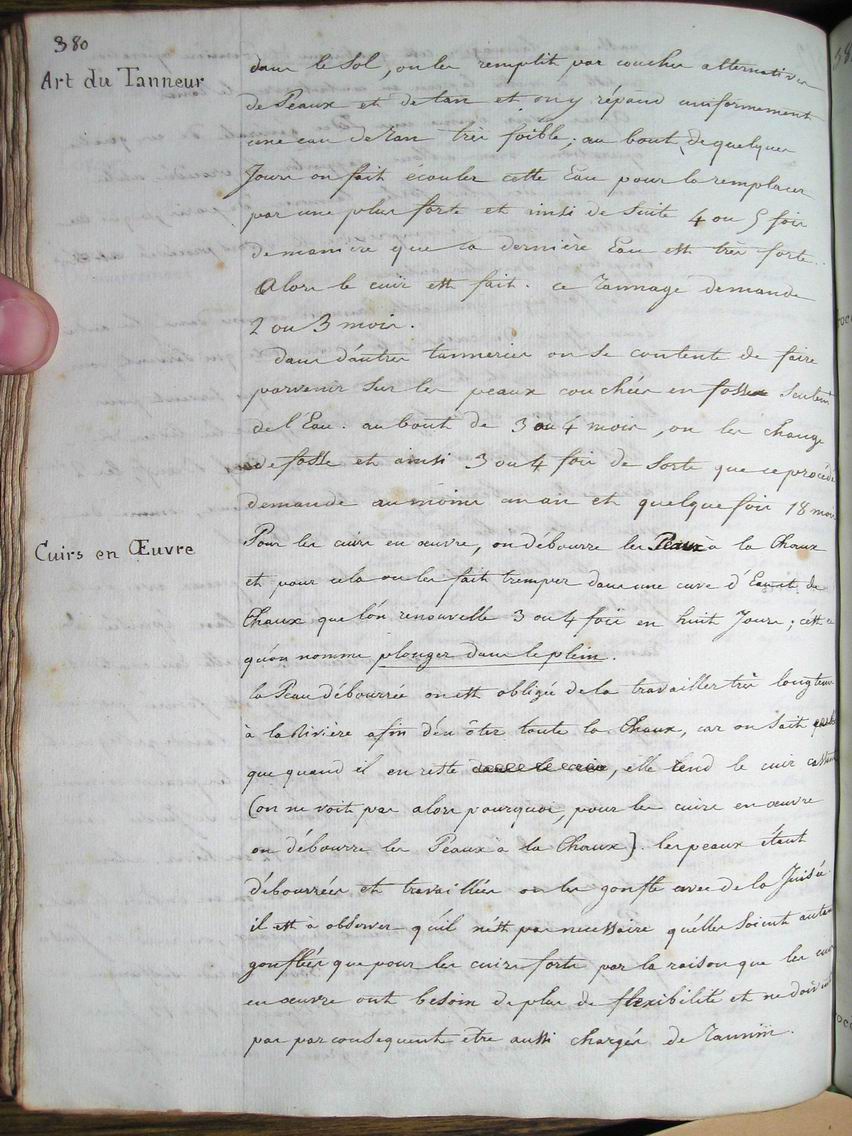 380
Art du Tanneur
dans le Sol, on les remplit par couches alternatives
de Peaux et de tan et on y répand uniformement
une eau de Tan très foible; au bout de quelques
Jours on fait écouler cette Eau pour la remplacer
par une plus forte et insi de suite 4 ou 5 fois
de maniere que la dernière Eau est très forte.
Alors le cuir est fait. ce Tannage demande
2 ou 3 mois.
dans d'autres tanneries on se contente de faire
parvenir sur les peaux couchées en fosse seulemt
de l'Eau. au bout de 3 ou 4 mois, on les change
de fosse et ainsi 3 ou 4 fois de sorte que ce procédé
demande au moins un an et quelque fois 18 mois
Cuirs en Œuvre
Pour les cuirs en œuvre, on débourre les Peaux à la Chaux
et pour cela on les fait tremper dans une cuve d'Eau et de
Chaux que l'on renouvelle 3 ou 4 fois en huit Jours; c'est ce
qu'on nomme plonger dans le plein.
la Peau débourrée on est obligée de la travailler très longtems
à la Rivière afin d'en ôter toute la Chaux, car on sait
que quand il en reste dans le cuir, elle rend le cuir cassant
(on ne voit pas alors pourquoi, pour les cuirs en œuvre
on débourre les Peaux à la Chaux) les peaux étant
débourrées et travaillées on les gonfle avec de la Jusée.
il est à observer qu'il n'est pas necessaire qu'elles soient autant
gonflées que pour les cuirs forts par la raison que les cuirs
en œuvre ont besoin de plus de flexibilité et ne doivent
pas par consequent etre aussi chargés de Tannin.